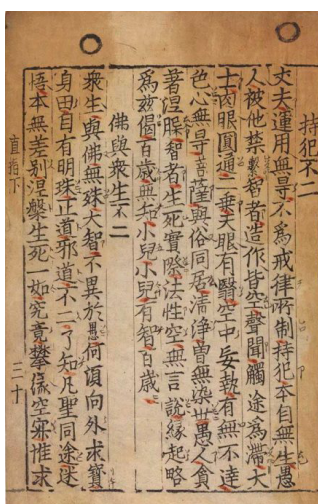 持犯不二
丈夫運用無㝵不爲戒律所制持犯本自無生愚
人被他禁繫智者造作皆空聲聞觸途爲滯大
士肉眼圓通二乘天眼有翳空中妄執有無不達
色心無㝵菩薩與俗同居淸淨曾無染世愚人貪
著涅槃智者生死實際法性空無言說緣起略
爲玆偈百歲無知小兒小兒有智百歲
佛與衆生不二
衆生與佛無殊大智不異於愚何須向外求寶
身田自有明珠正道邪道不二了知凡聖同途迷
悟本無差別涅槃生死一如究竟攀緣空寂惟求
直指下 三十